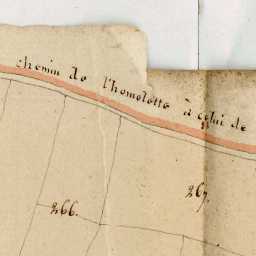 chemin de l'homelette à celui de
267.
266.